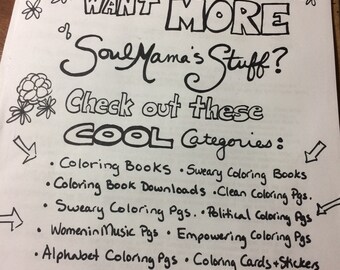 WANT MORE
of
SoulMama's Stuff?
Check out these
COOL Categories:
• Coloring Books • Sweary Coloring Books
• Coloring Book Downloads • Clean Coloring Pgs.
• Sweary Coloring Pgs. • Political Coloring Pgs
• Women in Music Pgs • Empowering Coloring Pgs
• Alphabet Coloring Pgs • Coloring Cards + Stickers